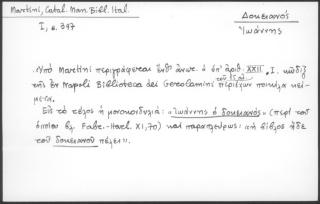 Martini, Catal. Man. Bibl. Ital.
I, σ. 397
Δοκειανός
Ἰωάννης
Ὑπὸ Martini περιγράφεται ἐνθ' ἀνωτ. ὁ ὑπ' ἀριθ. XXII. I. κῶδιξ
τῆς ἐν Napoli Biblioteca dei Gerolamini περιέχων ποικίλα κεί-
μενα.
Εἰς τὸ τέλος ἡ μονοκονδυλιά: «Ἰωάννης ὁ δοκειανὸς» (περὶ τοῦ
ὁποίου βλ. Fabr.-Harl. XI, 70) καὶ παραπλεύρως: «ἡ βίβλος ἥδε
τοῦ δοκειανοῦ πέλει».